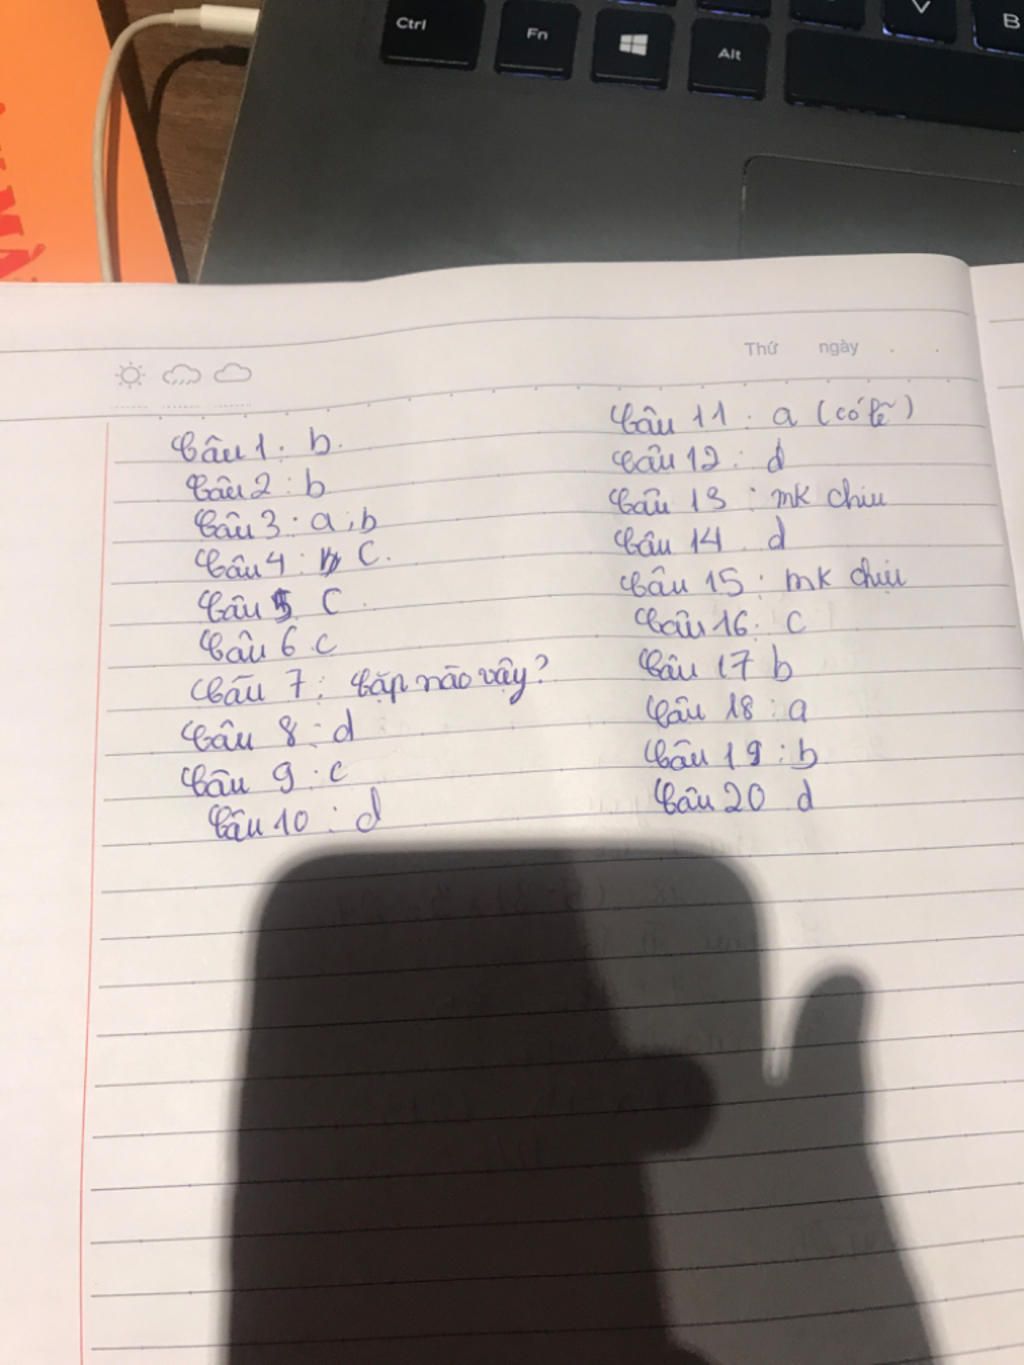 Ctrl
Fn
Alt
V
B
Thứ ngày . .
Câu 1: b.
Câu 2: b
Câu 3: a, b
Câu 4: C.
Câu 5 C.
Câu 6. C
Câu 7: Cặp nào vậy?
Câu 8: d
Câu 9: c
Câu 10: d
Câu 11: a (có lẽ)
Câu 12: d
Câu 13: mk chiu
Câu 14 d
Câu 15: mk chịu
Câu 16: C
Câu 17 b
Câu 18: a
Câu 19: b
Câu 20 d